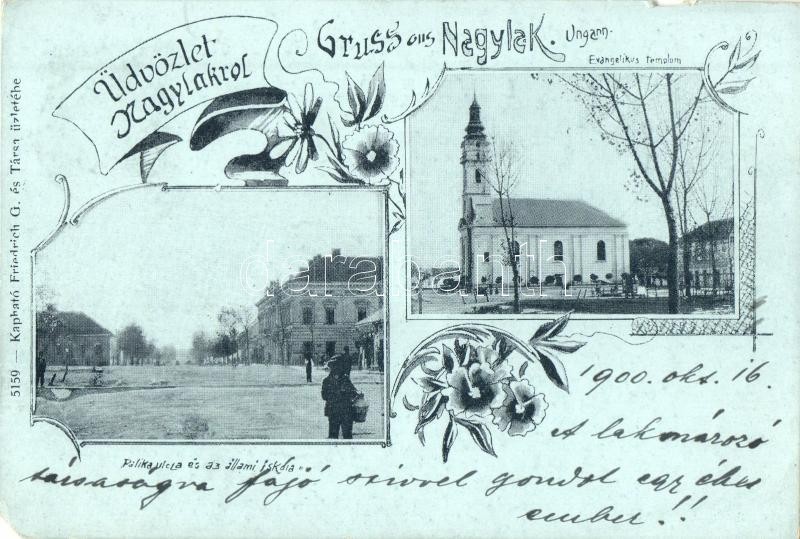 Üdvözlet
Nagylakról
Gruss aus Nagylak. Ungarn.
Evangelikus templom
5159 — Kapható Friedrich G. és Társa üzletébe
darabanth
Pólika utcza és az állami iskola
1900. okt. 16.
A lakmározó
társaságra fájó szivvel gondol egy éhes
ember!!